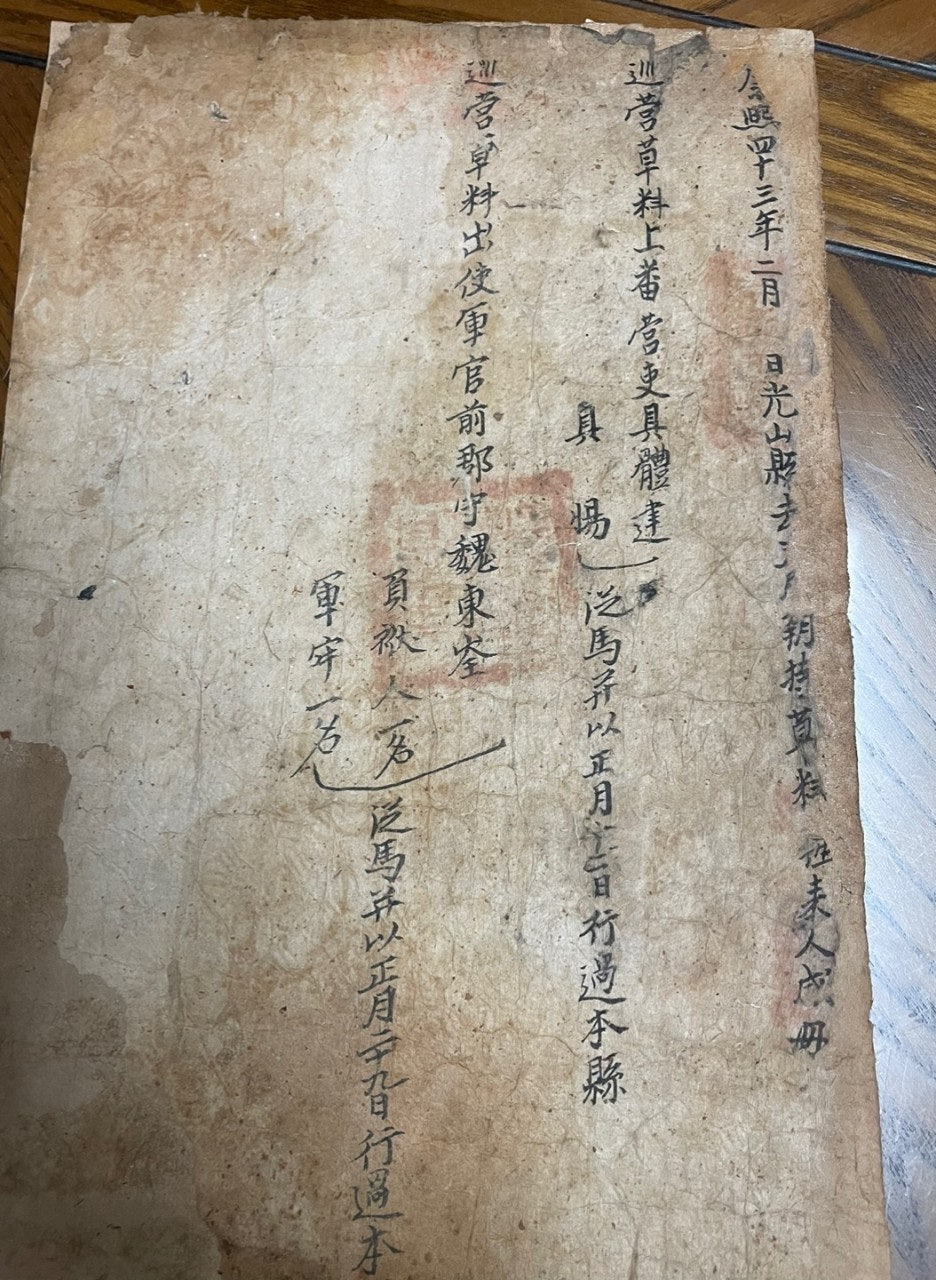 熙四十三年二月 日光山縣 草料 人成冊
巡營草料上番營吏具體建
具 暢
從馬并以正月十二日行過本縣
巡營草料出使軍官前郡守魏東峑
員 人一名
軍牢一名
從馬并以正月二十九日行過本